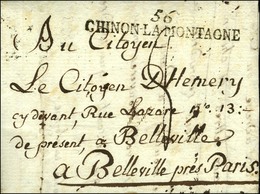 56
CHINON-LA MONTAGNE
Au Citoyen
Le Citoyen D'hemery
cy devant, Rue Lazare N.º 13:
de présent, a Belleville
a Belleville prés Paris.